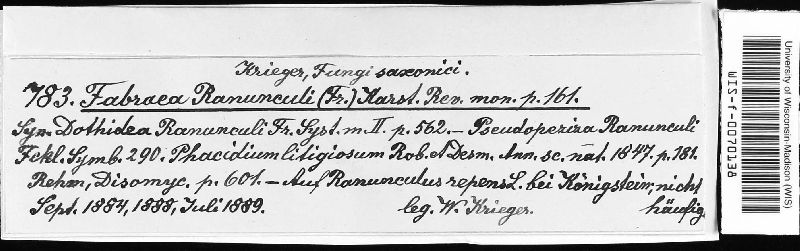 Krieger, Fungi saxonici.
783. Fabraea Ranunculi (Fr.) Karst. Rev. mon. p. 161.
Syn. Dothidea Ranunculi Fr. Syst. m. II. p. 562. – Pseudopeziza Ranunculi
Fckl. Symb. 290. Phacidium litigiosum Rob. et Desm. Ann. sc. nat. 1847. p. 181.
Rehm, Discomyc. p. 601. – Auf Ranunculus repens L. bei Königstein, nicht
Sept. 1884, 1888, Juli 1889. leg. W. Krieger. häufig.
University of Wisconsin-Madison (WIS)
WIS-f-0070138